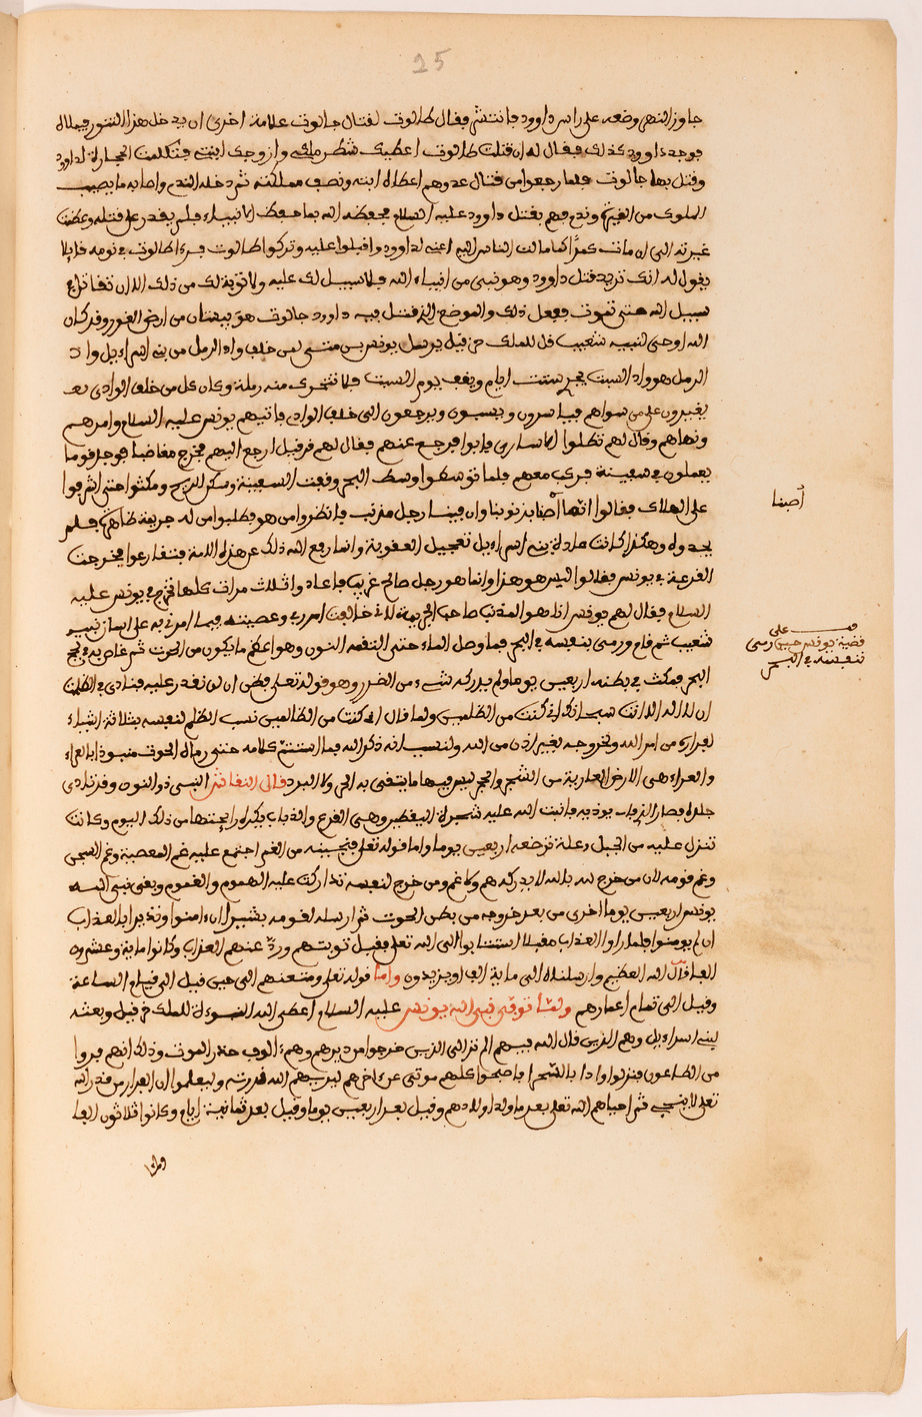 25
جاوز النهر وضعه على راس داوود فانتش فقال طالوت لقتال جالوت علامة اخرى ان يدخل هذا التنور فيملاه
فوجد داوود كذلك فقال له ان قتلت جالوت اعطيك شطر مالى وازوجك ابنتى فتكلمت الحجارة لداوود
وقتل بها جالوت فلما رجعوا من قتال عدوهم اعطاه ابنته ونصف مملكته ثم دخله الندم واصابه ما يصيب
الملوك من الغيرة وندم فهم بقتل داوود عليه السلام فحفظه الله بما حفظ الانبياء فلم يقدر على قتله وعظمت
غيرته الى ان مات كمدا لما مالت الناس اليه اعنى لداوود واقبلوا عليه وتركوا طالوت فرءا طالوت فى نومه قايلا
يقول له انك تريد قتل داوود وهو نبى من انبياء الله فلا سبيل لك عليه ولا توبة لك من ذلك الا ان تقاتل فى
سبيل الله حتى تموت ففعل ذلك والموضع الذى قتل فيه داوود جالوت هو بيسان من ارض الغور وقد كان
الله اوحى لنبيه شعيب قل للملك حزقيل يرسل يونس بن متى لمن خلف واد الرمل من بنى اسراءيل واد
الرمل هو واد السبت يجرى ستت ايام ويقف يوم السبت فلا تتحرك منه رملة وكان كل من خلف الوادى
يغيرون على من سواهم فياسرون ويسبون ويرجعون الى خلف الوادى فاتيهم يونس عليه السلام وامرهم
ونهاهم وقال لهم تطلوا الاسارى فابوا فرجع عنهم فقال لهم حزقيل ارجع اليهم فخرج مغاضبا فوجد قوما
يعملون فى سفينة فركب معهم فلما توسطوا وسط البحر وقفت السفينة وسكن الريح ومكثوا حتى اشرفوا
على الهلاك فقالوا انما اصبنا بذنوبنا وان فينا رجل مذنب فانظروا من هو فطلبوا من له جريمة ظاهرة فلم
يجدوه وهكذا كانت عادة بنى اسراءيل تعجيل العقوبة وانما رفع الله ذلك عن هذه الامة فتقارعوا فخرجت
القرعة فى يونس فقالوا ليس هو هذا وانما هو رجل صالح غريب فاعادوا ثلاث مرات كلها تخرج فى يونس عليه
السلام فقال لهم يونس انا هو المذنب صاحب الجريمة لانى خالفت امر ربى وعصيته فيما امرنى به على لسان نبيه
شعيب ثم قام ورمى بنفسه فى البحر فما وصل الماء حتى التقمه النون وهو اعظم ما يكون من الحوت ثم غاص به فى لجج
البحر فمكث فى بطنه اربعين يوما ولم يدركه شىء من الضرر وهو قوله تعلى فظن ان لن نقدر عليه فنادى فى الظلمت
ان لا اله الا انت سبحانك انى كنت من الظلمين ولما قال انى كنت من الظالمين نسب الظلم لنفسه بثلاثة اشياء
لفراره من امر الله ولخروجه بغير اذن من الله ولنسيانه ذكر الله فما استتم كلامه حتى رماه الحوت منبوذا بالعراء
والعراء هى الارض العارية من الشجر والحجر ليس فيها ما يتقى به الحر ولا البرد قال النقاش النبى ذو النون وقد تاذى
جلده فصار الذباب يوذيه فانبت الله عليه شجرة اليقطين وهى القرع والذباب يكره رايحتها من ذلك اليوم وكانت
تنزل عليه من الجبل وعلة ترضعه اربعين يوما واما قوله تعلى فنجينه من الغم اجتمع عليه غم المعصية وغم السجن
وغم قومه لان من خرج لله بالله لا يدركه هم ولا غم ومن خرج لنفسه تداركت عليه الهموم والغموم وبقى نبى الله
يونس اربعين يوما اخرى من بعد خروجه من بطن الحوت ثم ارسله لقومه بشيرا ان ءامنوا ونذيرا بالعذاب
ان لم يومنوا فلما راوا العذاب مقبلا استتابوا الى الله تعلى فقبل توبتهم وردّ عنهم العذاب وكانوا ماية وعشرون
الفا قال الله العظيم وارسلنه الى ماية الف او يزيدون واما قوله تعلى ومتعنهم الى حين قيل الى قيام الساعة
وقيل الى تمام اعمارهم ولمّا توفّى نبى الله يونس عليه السلام اعطى الله النبوءة للملك حزقيل وبعثه
لبنى اسراءيل وهم الذين قال الله فيهم الم تر الى الذين خرجوا من ديرهم وهم ءالوف حذر الموت وذلك انهم فروا
من الطاعون فنزلوا وادا بالشجر فاصبحوا كلهم موتى عن ءاخرهم ليريهم الله قدرته وليعلموا ان الفرار من قدر الله
تعلى لا ينجى ثم احياهم الله تعلى بعد ما ولدا ولادهم وقيل بعد اربعين يوما وقيل بعد ثمانية ايام وكانوا ثلاثون الفا
أصبنا
قف على
قضية يونس حين رمى
بنفسه فى البحر